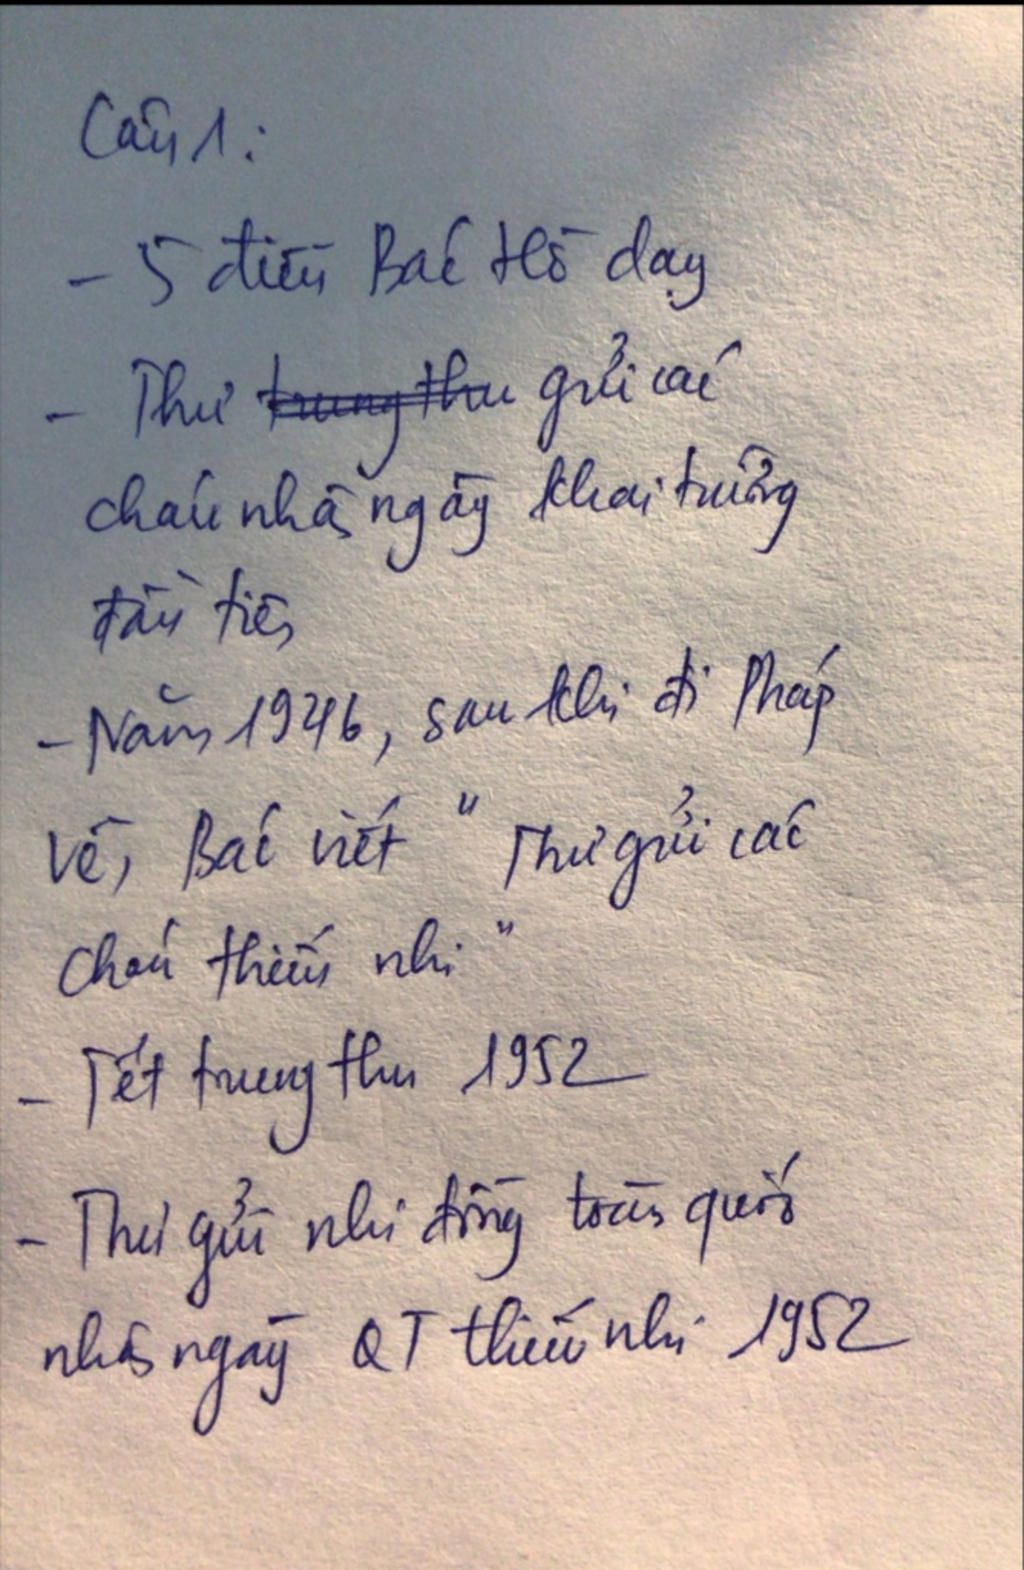 Câu 1:
- 5 điều Bác Hồ dạy
- Thư trung thu gửi các
cháu nhân ngày khai trường
đầu tiên
- Năm 1946, sau khi đi Pháp
về, Bác viết " Thư gửi các
cháu thiếu nhi "
- Tết trung thu 1952
- Thư gửi nhi đồng toàn quốc
nhân ngày QT thiếu nhi 1952